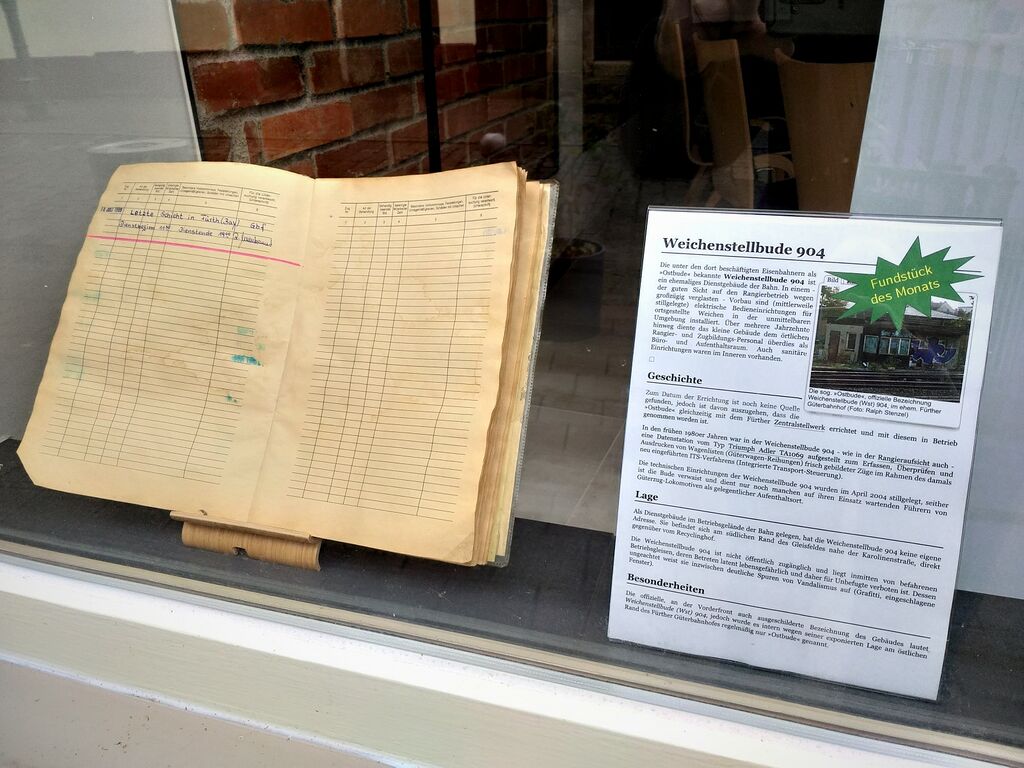 Letzte Schicht in Fürth (Bay) Gbf
Dienstbeginn Dienstende
Weichenstellbude 904
Fundstück
des Monats
Bild
Die unter den dort beschäftigten Eisenbahnern als
»Ostbude« bekannte Weichenstellbude 904 ist
ein ehemaliges Dienstgebäude der Bahn. In einem -
der guten Sicht auf den Rangierbetrieb wegen
großzügig verglasten - Vorbau sind (mittlerweile
stillgelegte) elektrische Bedieneinrichtungen für
ortsgestellte Weichen in der unmittelbaren
Umgebung installiert. Über mehrere Jahrzehnte
hinweg diente das kleine Gebäude dem örtlichen
Rangier- und Zugbildungs-Personal überdies als
Büro- und Aufenthaltsraum. Auch sanitäre
Einrichtungen waren im Inneren vorhanden.
Die sog. »Ostbude«, offizielle Bezeichnung
Weichenstellbude (Wst) 904, im ehem. Fürther
Güterbahnhof (Foto: Ralph Stenzel)
Geschichte
Zum Datum der Errichtung ist noch keine Quelle
gefunden, jedoch ist davon auszugehen, dass die
»Ostbude« gleichzeitig mit dem Fürther Zentralstellwerk errichtet und mit diesem in Betrieb
genommen worden ist.
In den frühen 1980er Jahren war in der Weichenstellbude 904 - wie in der Rangieraufsicht auch -
eine Datenstation vom Typ Triumph Adler TA1069 aufgestellt zum Erfassen, Überprüfen und
Ausdrucken von Wagenlisten (Güterwagen-Reihungen) frisch gebildeter Züge im Rahmen des damals
neu eingeführten ITS-Verfahrens (Integrierte Transport-Steuerung).
Die technischen Einrichtungen der Weichenstellbude 904 wurden im April 2004 stillgelegt, seither
ist die Bude verwaist und dient nur noch manchen auf ihren Einsatz wartenden Führern von
Güterzug-Lokomotiven als gelegentlicher Aufenthaltsort.
Lage
Als Dienstgebäude im Betriebsgelände der Bahn gelegen, hat die Weichenstellbude 904 keine eigene
Adresse. Sie befindet sich am südlichen Rand des Gleisfeldes nahe der Karolinenstraße, direkt
gegenüber vom Recyclinghof.
Die Weichenstellbude 904 ist nicht öffentlich zugänglich und liegt inmitten von befahrenen
Betriebsgleisen, deren Betreten latent lebensgefährlich und daher für Unbefugte verboten ist. Dessen
ungeachtet weist sie inzwischen deutliche Spuren von Vandalismus auf (Grafitti, eingeschlagene
Fenster).
Besonderheiten
Die offizielle, an der Vorderfront auch ausgeschilderte Bezeichnung des Gebäudes lautet
Weichenstellbude (Wst) 904, jedoch wurde es intern wegen seiner exponierten Lage am östlichen
Rand des Fürther Güterbahnhofes regelmäßig nur »Ostbude« genannt.